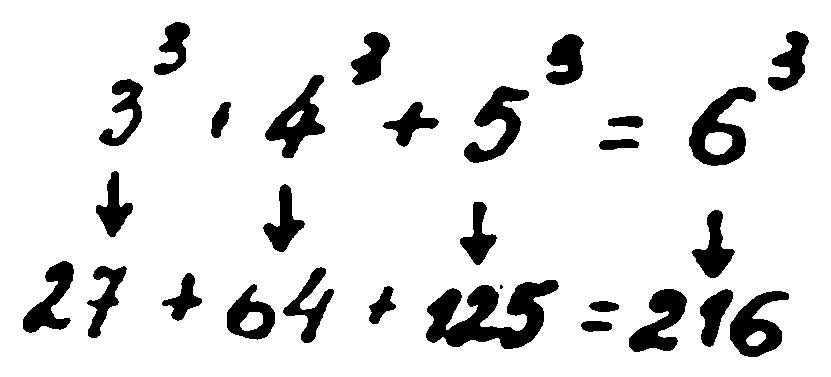 3³ · 4³ + 5³ = 6³
↓ ↓ ↓ ↓
27 + 64 + 125 = 216